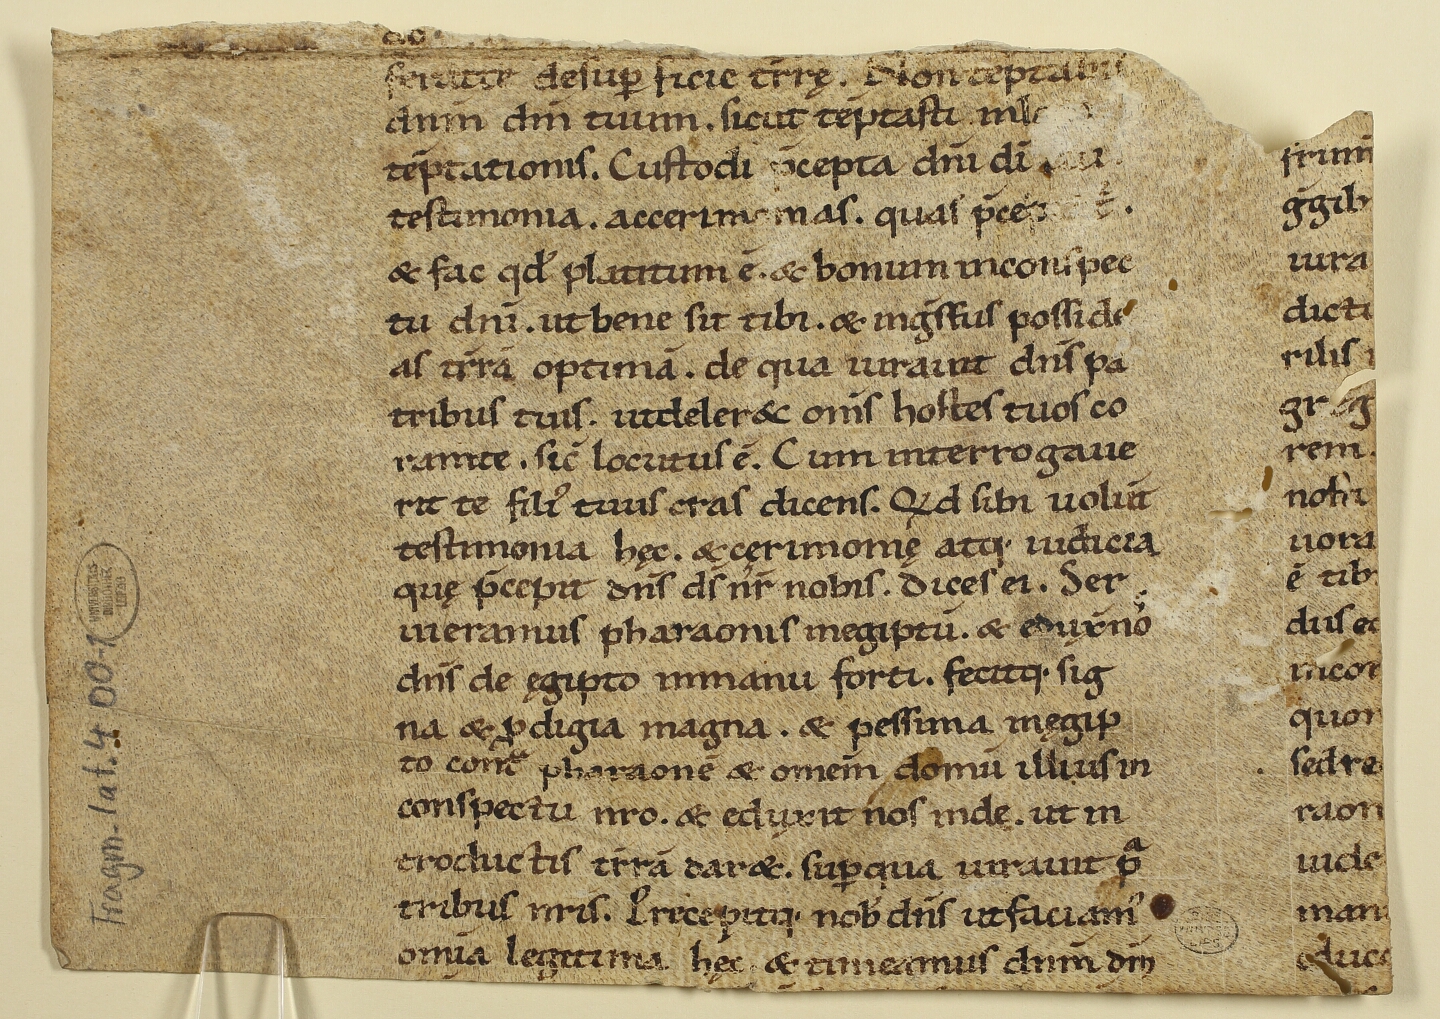 ferat te desup ficie trrę. Non teptabis
dnm dm tuum. sicut teptasti in
teptationis. Custodi pcepta dni di tui.
testimonia. accerimonias. quas
& fac qd placitum ē. & bonum inconspec
tu dni. ut bene sit tibi. & ingssus posside
as trrā optimā. de qua iurauit dns pa
tribus tuis. utdeler& omīs hostes tuos co
ramte. sic̄ locutus ē. Cum interrogaue
rit te fili tuus cras dicens. Qd sibi uolūt
testimonia hęc. & cęrimonię atq; iudicia
quę p̄cepit dn̄s ds nr̄ nobis. Dices ei. Ser
uieramus pharaonis inegiptū. & eduxit nos
dn̄s de ęgipto inmanu forti. fecitq; sig
na & pdigia magna. & pessima inęgip
to cont̄ pharaonē & omem̄ domū illius in
conspectu nro. & eduxit nos inde. ut in
troductis trrā dar&. sup qua iurauit pa
tribus nris. Precepitq; nob dns utfaciam
omīa legitima hęc. & timeamus dnm̄ dm̄
ggib
iura
dicti
rilis
rem.
nostri
uora
ē tib
dus ed
incon
quon
sed re
raon
uide
man
educ
Fragm. lat. 400-1